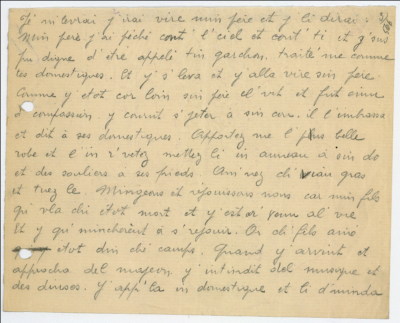 J' m'leverai j'irai vire min père et j'li dirai :
Min père j'ai péché cont' l'ciel et cont' ti et j'sus
pu digne d'être appelé tin garchon, traite mé comme
tes domestiques. Et y s'leva et y alla vire sin père.
Comme y étot cor loin sin père el vit et fut émue
d' compassion, y courut s'jeter à sin cou. il l'imbrassa
et dit à ses domestiques. Apportez me l' plus belle
robe et l'in r'vetez mettez li in anneau à sin do
et des souliers à ses pieds. Am'nez chi viau gras
et tuez le. Mingeons et réjouissons nous car min fils
qu' vla chi étot mort et y est or venu al vie
Et y qu'minchèrent à s'rejouir. Or ch' fils aîné
étot din ché camps. Quand y arvint et
approcha del majeon, y intindit del musique et
des danses. Y app'la in domestique et li d'manda